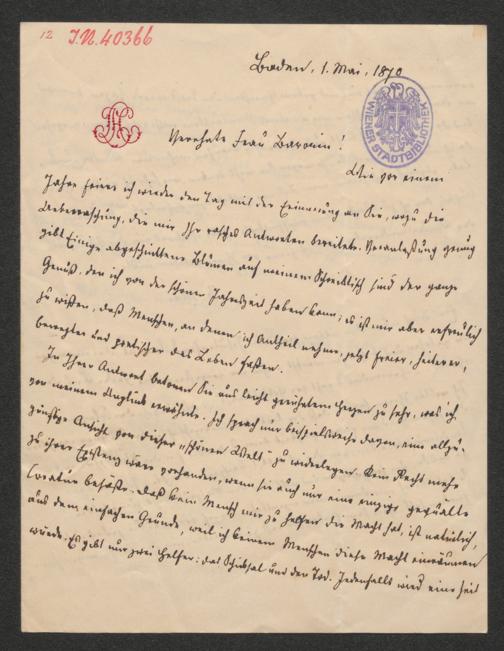 12 J.N. 40366
Baden, 1. Mai, 1870
WIENER STADTBIBLIOTHEK
Verehrte Frau Baronin!
Wie vor einem
Jahre feiere ich wieder den Tag mit der Erinnerung an Sie, wozu die
Ueberraschung, die mir Ihr rasches Antworten bereitete, Veranlassung genug
gibt. Einige abgeschnittene Blumen auf meinem Schreibtisch sind der ganze
Genuß, den ich von der schönen Jahreszeit haben kann; es ist mir aber erfreulich
zu wissen, daß Menschen, an denen ich Antheil nehme, jetzt freier, heiterer,
bewegter und poetischer das Leben fassen.
In Ihrer Antwort betonen Sie aus leicht gerührtem Herzen zu sehr, was ich
von meinem Unglück erwähnte. Ich sprach nur beispielsweise davon, eine allzu-
günstige Ansicht von dieser "schönen Welt" zu widerlegen. Kein Recht mehr
zu ihrer Existenz wäre vorhanden, wenn sie auch nur eine einzige gequälte
Creatur besäße. Daß kein Mensch mir zu helfen die Macht hat, ist natürlich,
aus dem einfachen Grunde, weil ich keinem Menschen diese Macht einräumen
würde. Es gibt nur zwei Helfer: das Schicksal und den Tod. Jedenfalls wird eine seit